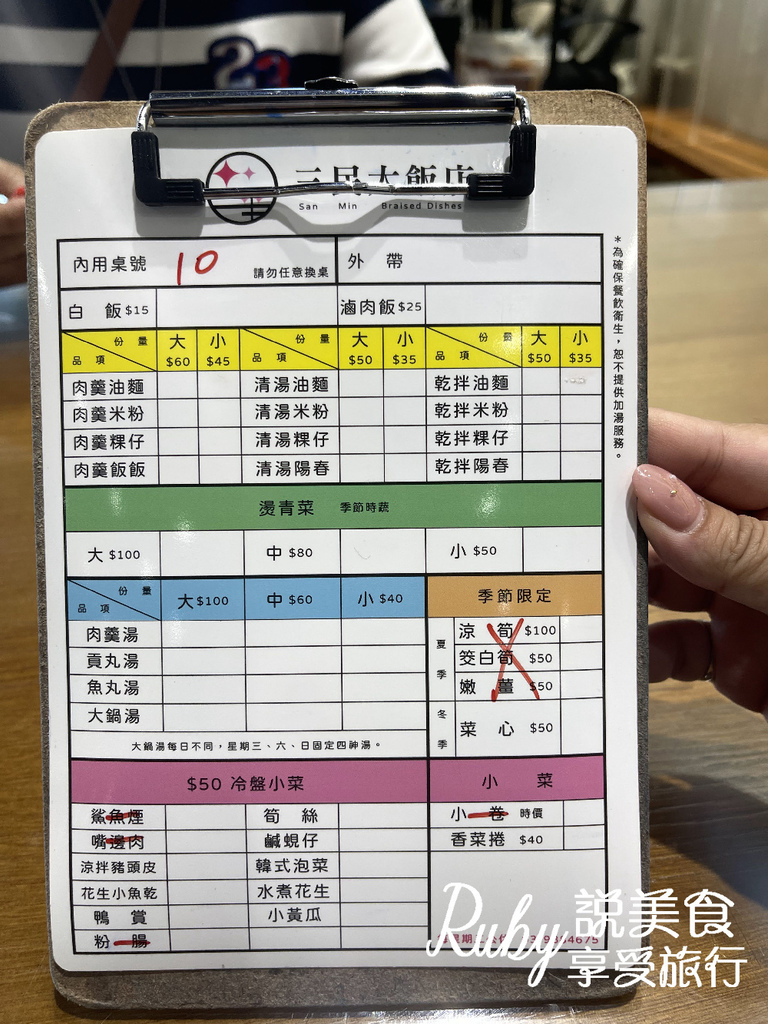 三民大飯店
San Min Braised Dishes
內用桌號 10 請勿任意換桌 外帶
白飯 $15 滷肉飯 $25
份量 品項 大 $60 小 $45 份量 品項 大 $50 小 $35 份量 品項 大 $50 小 $35
肉羹油麵 清湯油麵 乾拌油麵
肉羹米粉 清湯米粉 乾拌米粉
肉羹粿仔 清湯粿仔 乾拌粿仔
肉羹飯飯 清湯陽春 乾拌陽春
燙青菜 季節時蔬
大 $100 中 $80 小 $50
份量 品項 大 $100 中 $60 小 $40
肉羹湯
貢丸湯
魚丸湯
大鍋湯
大鍋湯每日不同，星期三、六、日固定四神湯。
季節限定
夏季
涼筍 $100
筊白筍 $50
嫩薑 $50
冬季
菜心 $50
$50 冷盤小菜
鯊魚煙 筍絲
嘴邊肉 鹹蜆仔
涼拌豬頭皮 韓式泡菜
花生小魚乾 水煮花生
鴨賞 小黃瓜
粉腸
小菜
小卷 時價
香菜捲 $40
*為確保餐飲衛生，恕不提供加湯服務。
Ruby 説美食
享受旅行